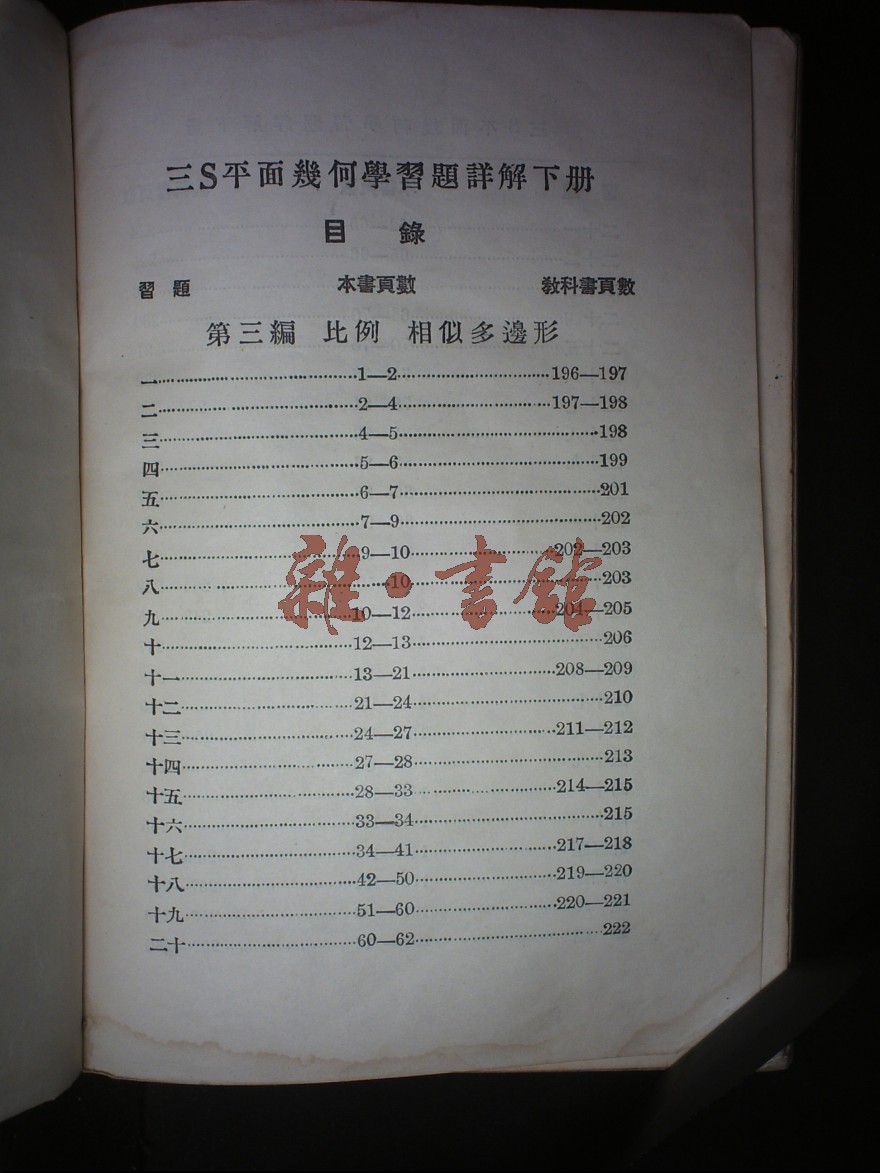 三S平面幾何學習題詳解下册
目 錄
習題 本書頁數 敎科書頁數
第三編 比例 相似多邊形
一 1—2 196—197
二 2—4 197—198
三 4—5 198
四 5—6 199
五 6—7 201
六 7—9 202
七 9—10 202—203
八 10 203
九 10—12 204—205
十 12—13 206
十一 13—21 208—209
十二 21—24 210
十三 24—27 211—212
十四 27—28 213
十五 28—33 214—215
十六 33—34 215
十七 34—41 217—218
十八 42—50 219—220
十九 51—60 220—221
二十 60—62 222
雜·書館